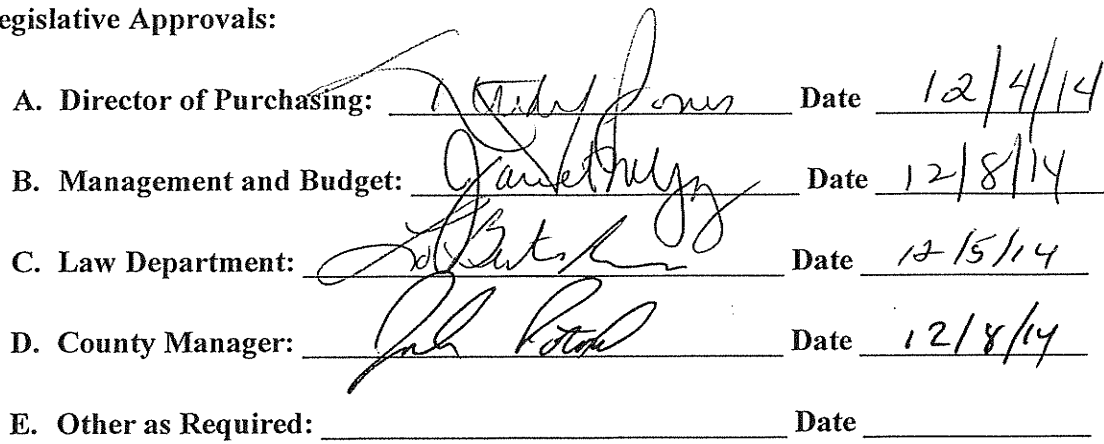 egislative Approvals:
A. Director of Purchasing: Jones Date 12/4/14
B. Management and Budget: Date 12/8/14
C. Law Department: Date 12/5/14
D. County Manager: Date 12/8/14
E. Other as Required: Date